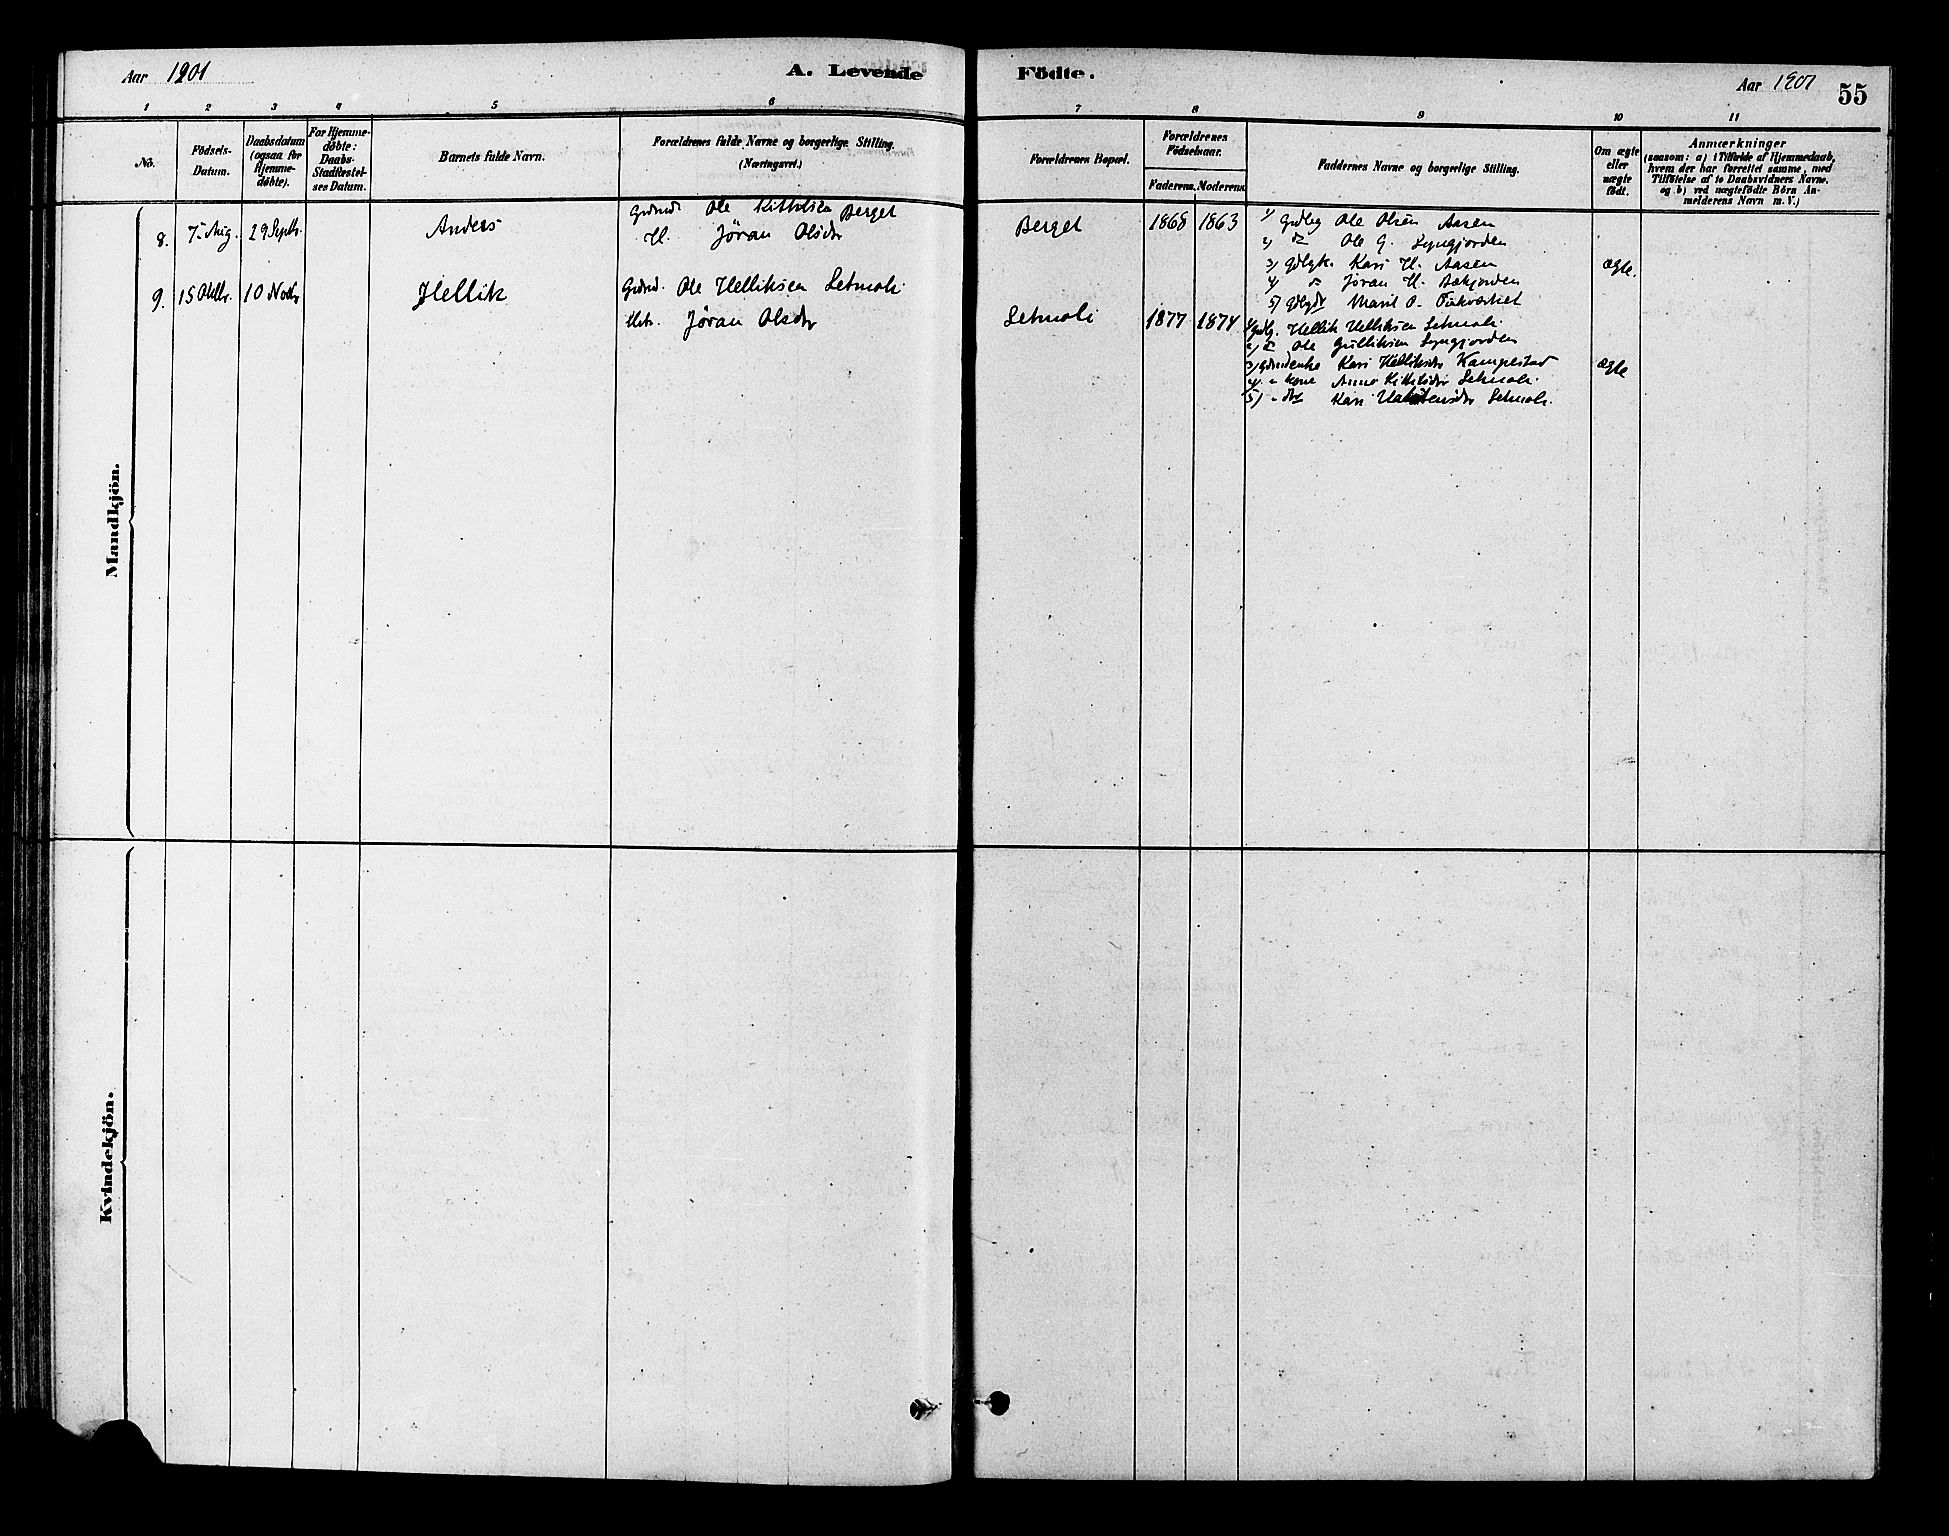 Aar 1901
A. Levende
Födte.
Aar 1901
55
1 2 3 4 5 6 7 8 9 10 11
No.
Födsels-
Datum.
Daabsdatum
(ogsaa for
Hjemme-
döbte).
For Hjemme-
döbte:
Daabs-
Stadfæstel-
ses Datum.
Barnets fulde Navn.
Forældrenes fulde Navne og borgerlige Stilling.
(Næringsvei.)
Forældrenes Bopæl.
Forældrenes
Födselsaar.
Faderens. Moderens.
Faddernes Navne og borgerlige Stilling.
Om ægte
eller
uægte
födt.
Anmærkninger
(saasom: a) i Tilfælde af Hjemmedaab,
hvem der har forrettet samme, med
Tilföielse af to Daabsvidners Navne,
og b) ved uægtefödte Börn An-
melderens Navn m. V.)
Mandkjön.
8. 7. Aug. 29 Septb. Anders
Grdmd. Ole Kittilsen Berget
H. Jøran Olsdtr
Berget 1868 1863
1) Grdbg Ole Olsen Aasen
2) do Ole G. Lyngjorden
3) Gdbgk. Kari H. Aasen
4) do Jøran H.
5) Gdbgdtr Marit O.
ægte.
9. 15 Oktbr. 10 Novbr Hellik
Grdmd. Ole Helliksen Setmoli
Hstr. Jøran Olsdtr
Setmoli 1877 1874
1) Gdbg. Hellik Helliksen Setmoli
2) do Ole Gulliksen Lyngjorden
3) Kari Helliksdtr Kampestad
4) " kone Anne Kittilsdtr Setmoli
5) " dtr Kari Setmoli.
ægte
Kvindekjön.